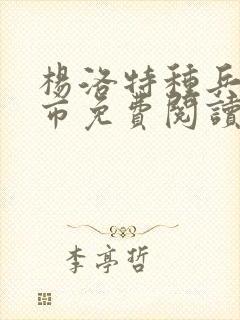 楊洛特種兵
市免費閱讀
李亭哲